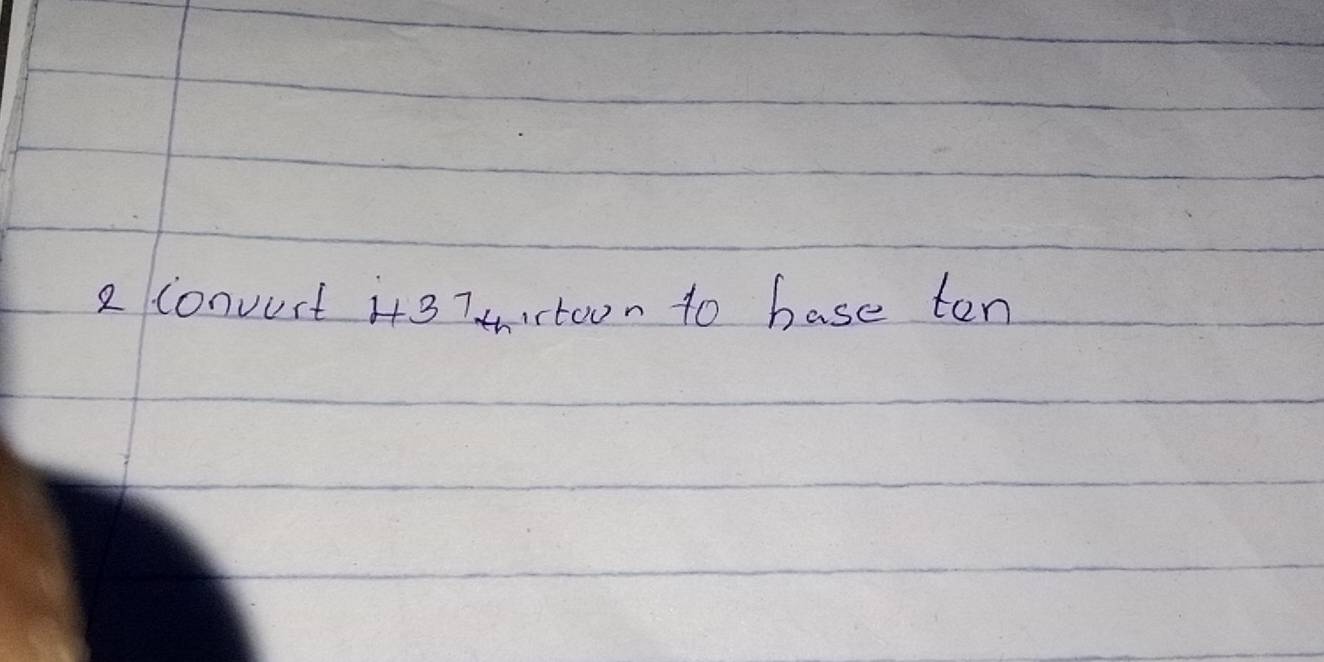 2 Convert 437thirteen to base ten